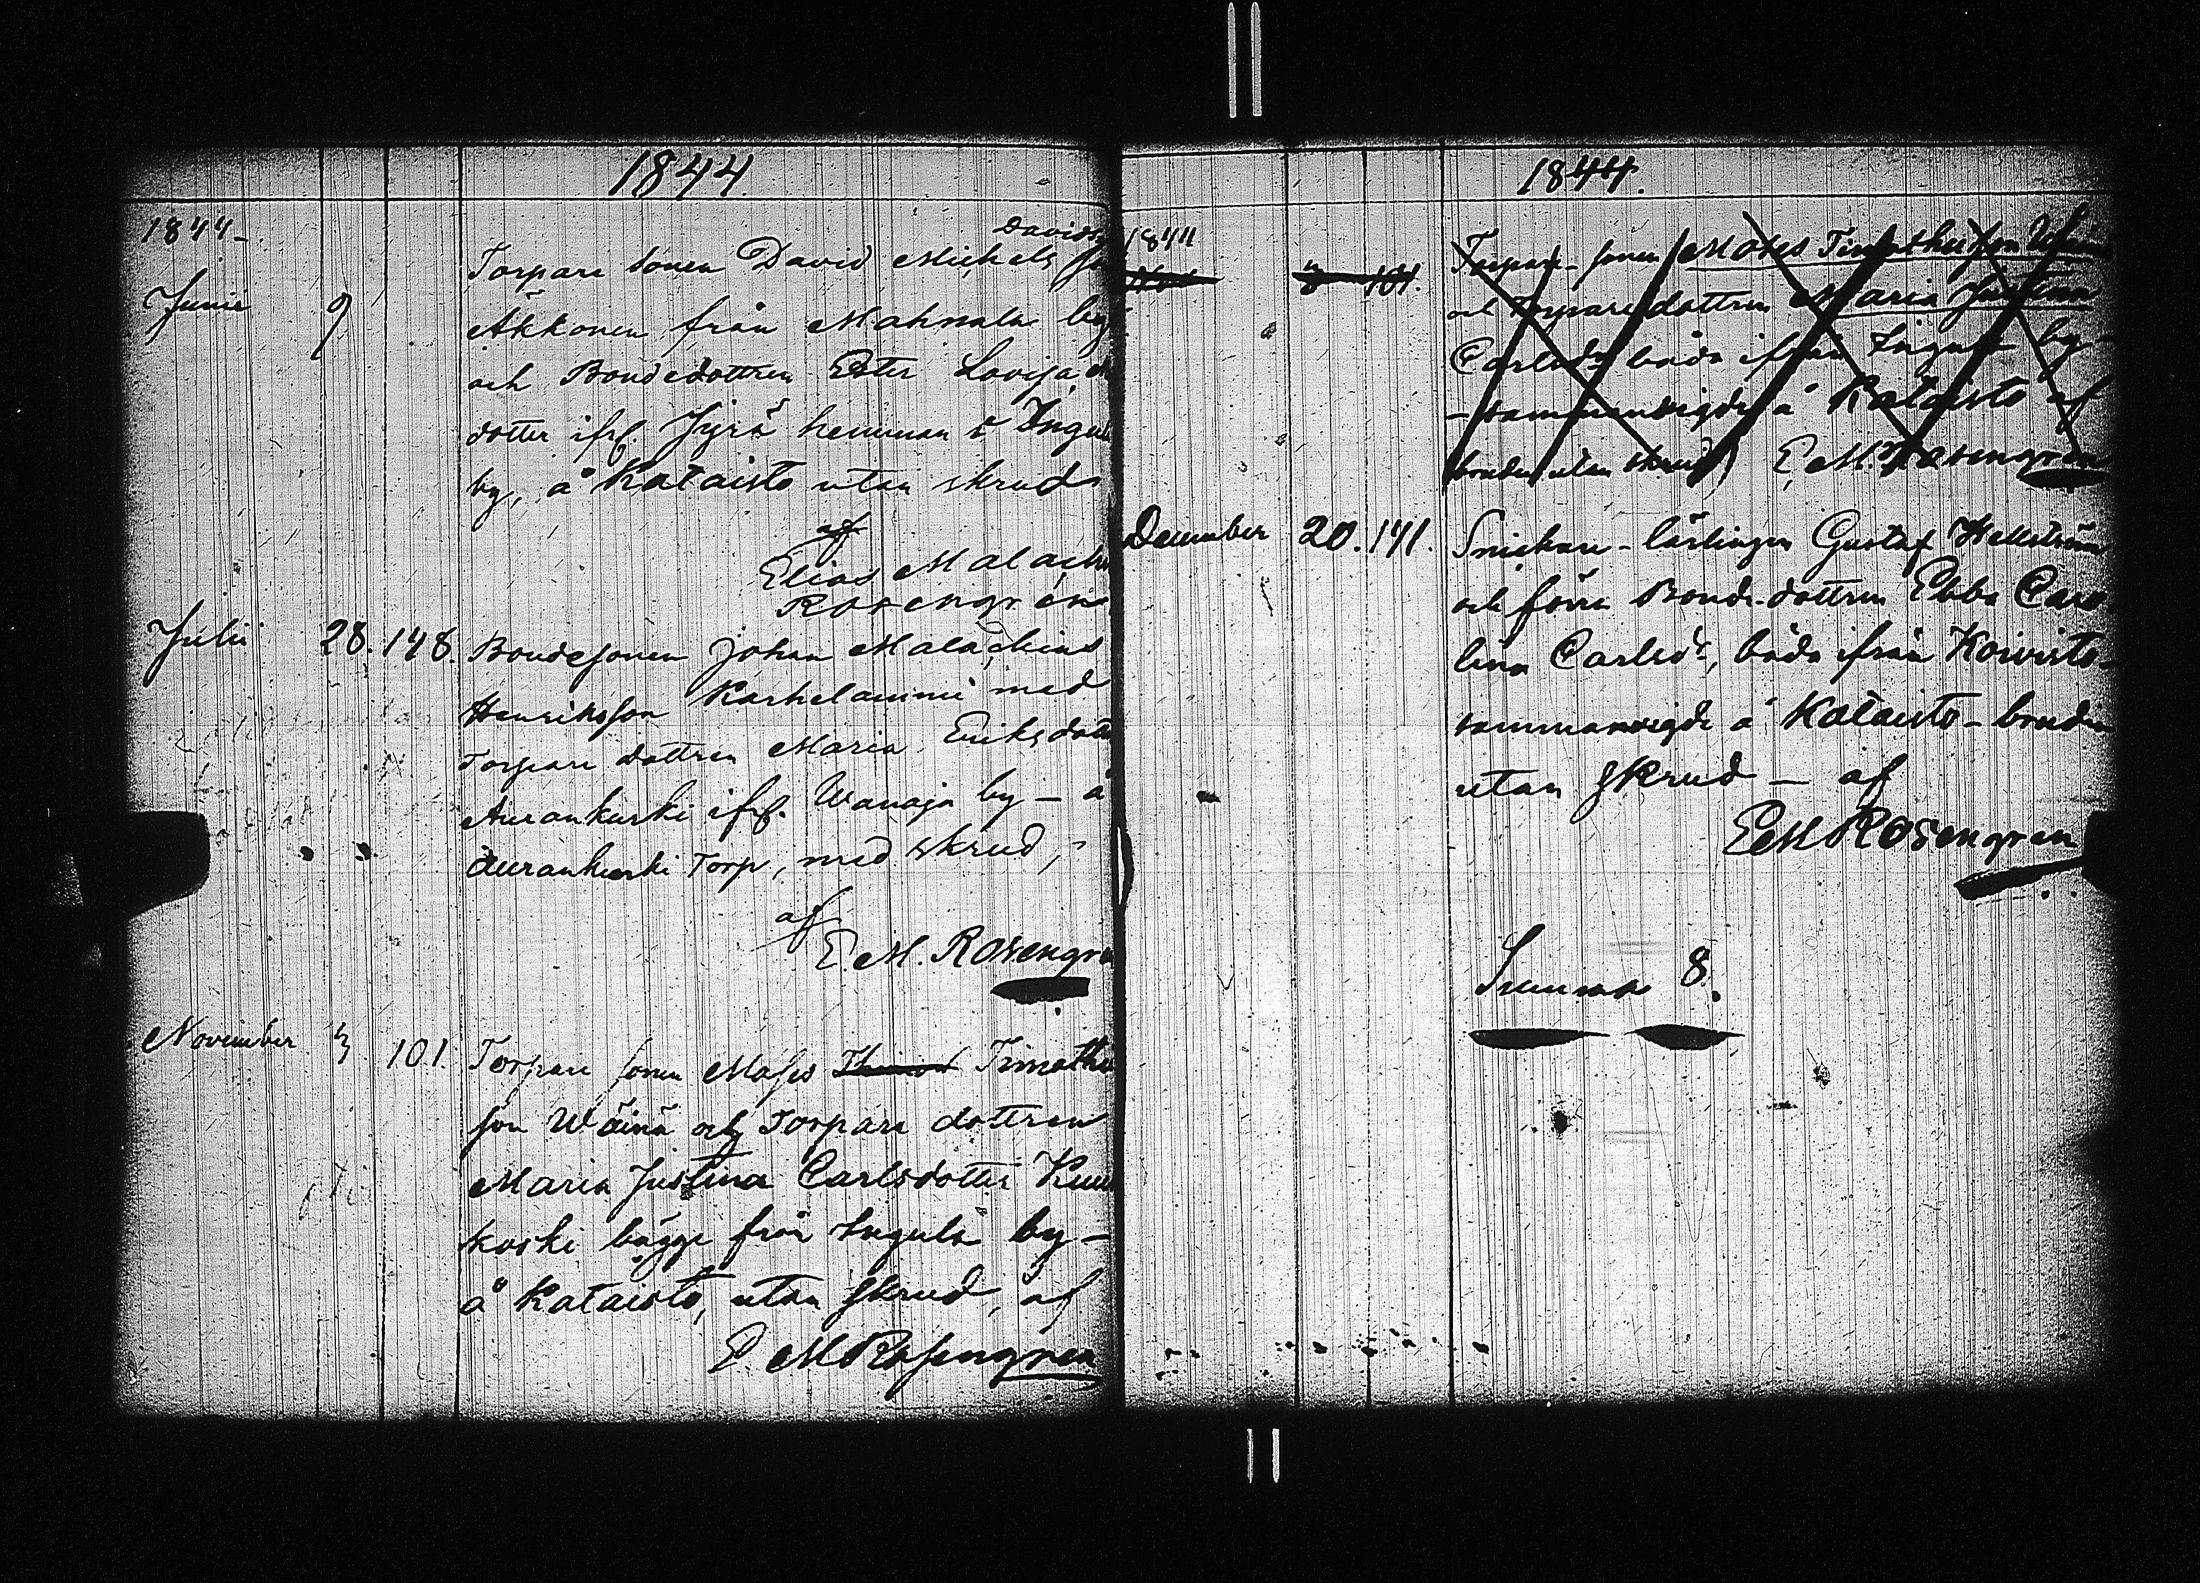 1844
1844-
Junii 9
Torpare sonen David Michels
Äkkonen från Mahnala by
och Bondedottren Ester Lovisa
dotter ifrå. Jyrä hemman i
by, å Kataisto utan skrud
af
Elias Malach
Rosengren
Julii 28. 148. Bondesonen Johan Malachias
Henriksson Karhelammi med
Torpare dottren Maria Eriksdotter
Aurankurki ifrå. Wanaja by – å
Aurankurki Torp, med skrud,
af
E. M. Rosengre
November 3 101. Torpare sonen Moses Timothe
son Wäinä och Torpare dottren
Maria Justina Carlsdotter
koski bägge från Ingula by –
å Kataisto, utan skrud, af
E. M Rosengren
1844.
1844
Nov 3 101. Torpare-sonen Moses Timotheusson
och Torparedottren Maria Justina
Carlsdr båda ifrån Ingula by
– sammanvigde å Kataisto af
bruden utan skrud E. M. Rosengren
December 20. 141. Snickare-lärlingen Gustaf Hellström
och förra Bonde-dottren Ebba Caro
lina Carlsdr, båda ifrån Koivisto-
sammanvigde å Kataisto – bruden
utan skrud – af
EM Rosengren
Summa 8.